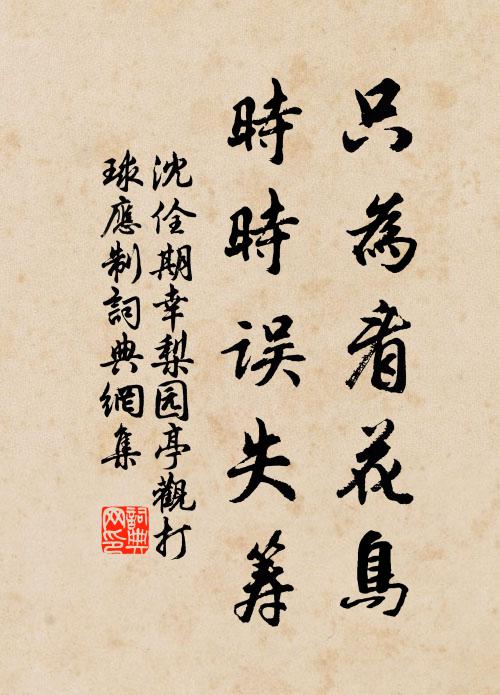 只為看花鳥
時時误失筹
沈佺期幸梨园亭觀打
球應制詞典網集
詞典
网印